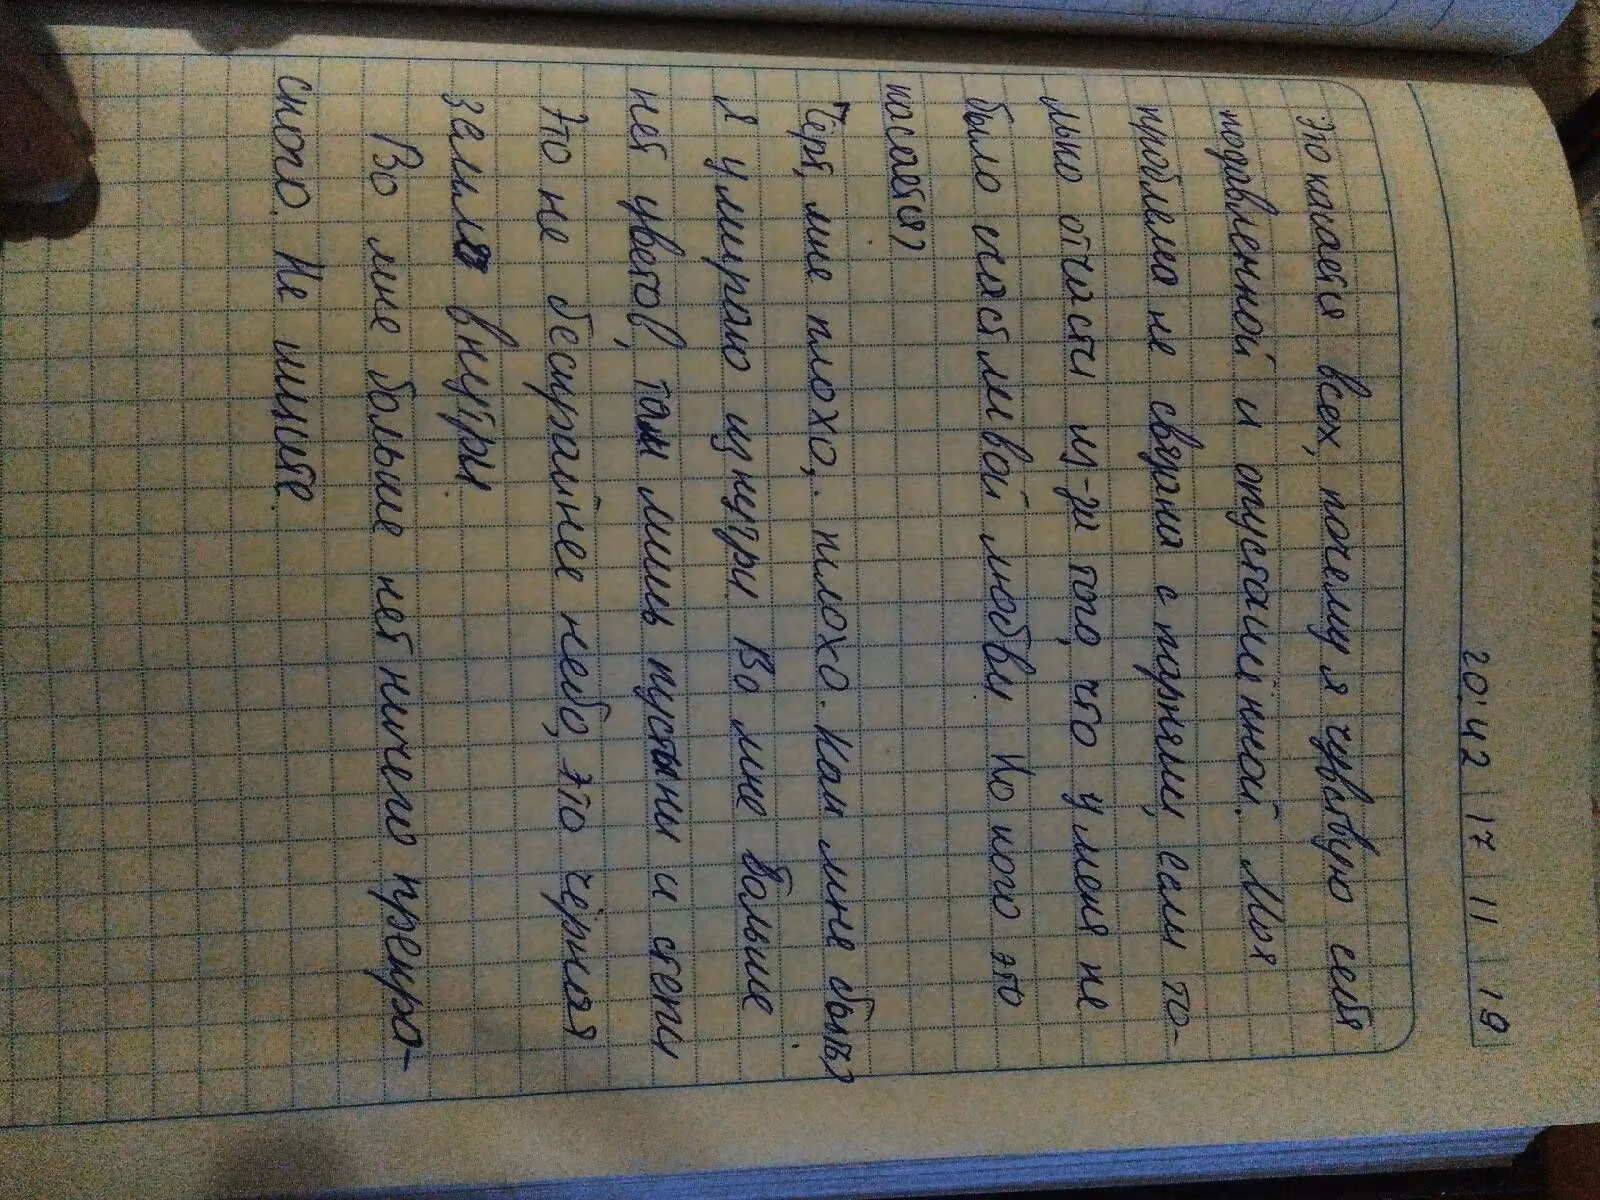 20:42 17 11 19
Это касается всех, почему я чувствую себя
подавленной и опустошённой. Моя
проблема не связана с парнями, если то-
лько отчасти из-за того, что у меня не
было счастливой любви. Но кого это
касается?
Чёрт, мне плохо, плохо. Как мне быть?
Я умираю изнутри. Во мне больше
нет цветов, там лишь пустыни и степи
Это не бескрайнее небо, это чёрная
земля внутри.
Во мне больше нет ничего прекра-
сного. Не ищите.